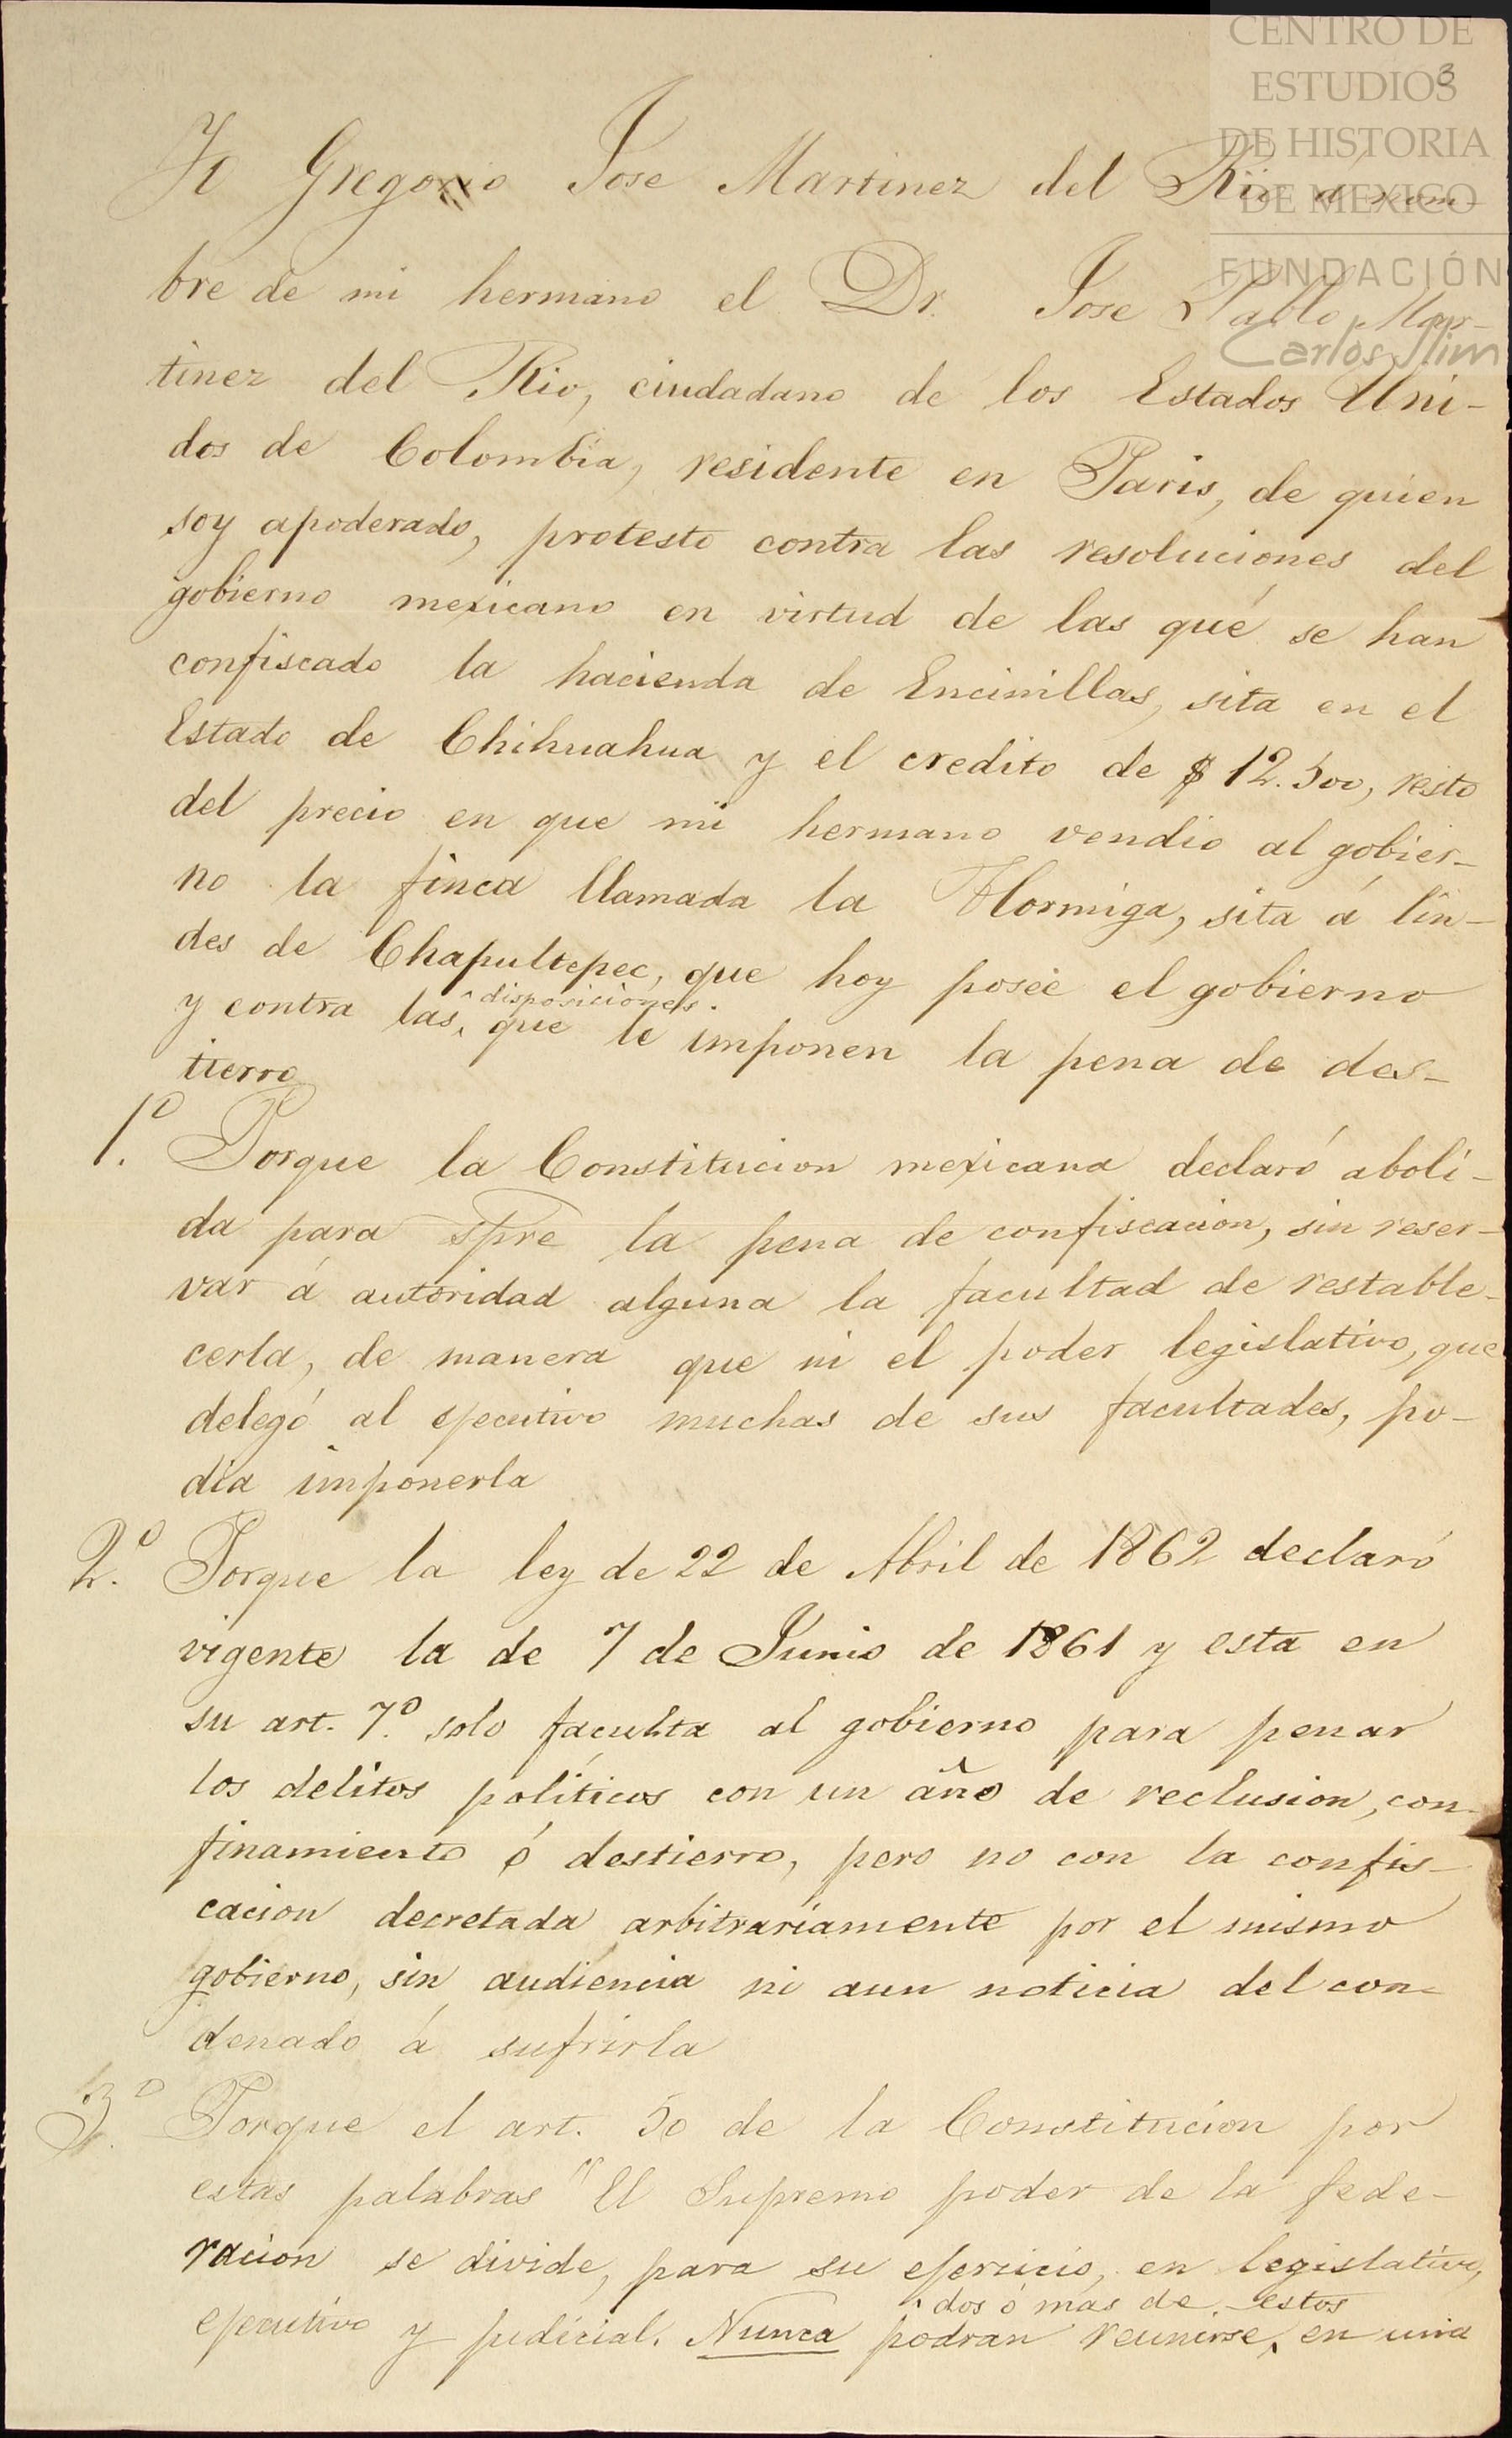 CENTRO DE
ESTUDIOS
3
DE HISTORIA
DE MEXICO
FUNDACIÓN
Carlos Slim
Yo Gregorio Jose Martinez del Rio á nom-
bre de mi hermano el Dr. Jose Pablo Mar-
tinez del Rio, ciudadano de los Estados Uni-
dos de Colombia, residente en Paris, de quien
soy apoderado, protesto contra las resoluciones del
gobierno mexicano en virtud de las qué se han
confiscado la hacienda de Encinillas, sita en el
Estado de Chihuahua y el credito de $ 12.500, resto
del precio en que mi hermano vendio al gobier-
no la finca llamada la Hormiga, sita á lin-
des de Chapultepec, que hoy posee el gobierno
disposiciones
y contra las que le imponen la pena de des-
tierro
1º. Porque la Constitucion mexicana declaró aboli-
da para spre la pena de confiscacion, sin reser-
var á autoridad alguna la facultad de restable-
cerla, de manera que ni el poder legislativo, que
delegó al ejecutivo muchas de sus facultades, po-
dia imponerla
2º. Porque la ley de 22 de Abril de 1862 declaró
vigente la de 7 de Junio de 1861 y esta en
su art. 7º. solo faculta al gobierno para penar
los delitos políticos con un año de reclusion, con-
finamiento ó destierro, pero no con la confis-
cacion decretada arbitrariamente por el mismo
gobierno, sin audiencia ni aun noticia del con-
denado á sufrirla
3º. Porque el art. 50 de la Constitucion por
estas palabras "El Supremo poder de la fede-
racion se divide, para su ejercicio, en legislativo,
dos ó mas de estos
ejecutivo y judicial. Nunca podran reunirse en una